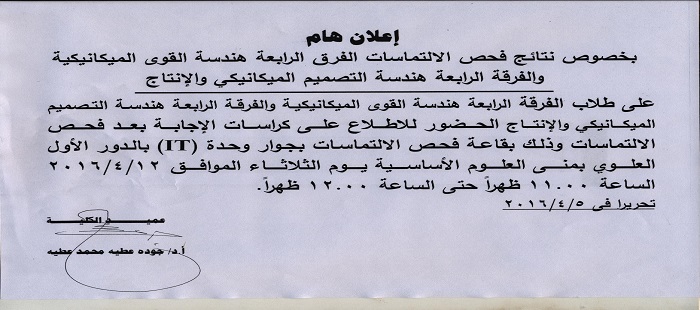 إعلان هام
بخصوص نتائج فحص الالتماسات الفرق الرابعة هندسة القوى الميكانيكية
والفرقة الرابعة هندسة التصميم الميكانيكي والإنتاج
على طلاب الفرقة الرابعة هندسة القوى الميكانيكية والفرقة الرابعة هندسة التصميم
الميكانيكي والإنتاج الحضور للاطلاع على كراسات الإجابة بعد فحص
الالتماسات وذلك بقاعة فحص الالتماسات بجوار وحدة (IT) بالدور الأول
العلوي بمنى العلوم الأساسية يوم الثلاثاء الموافق ٢٠١٦/٤/١٢
الساعة ١١.٠٠ ظهراً حتى الساعة ١٢.٠٠ ظهراً.
تحريرا فى ٢٠١٦/٤/٥
عميد الكلية
أ.د/ جوده عطيه محمد عطيه